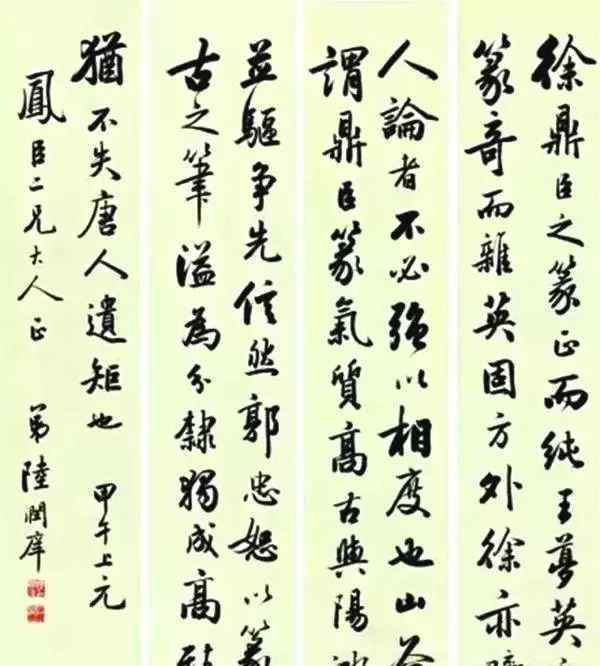 徐鼎臣之篆正而純王夢英
篆奇而雜英固方外徐亦
人論者不必強以相度也山谷
謂鼎臣篆氣質高古與陽
並驅爭先信然郭忠恕以篆
古之筆溢為分隸獨成高
猶不失唐人遺矩也 甲午上元
鳳臣二兄大人正 弟陸潤庠